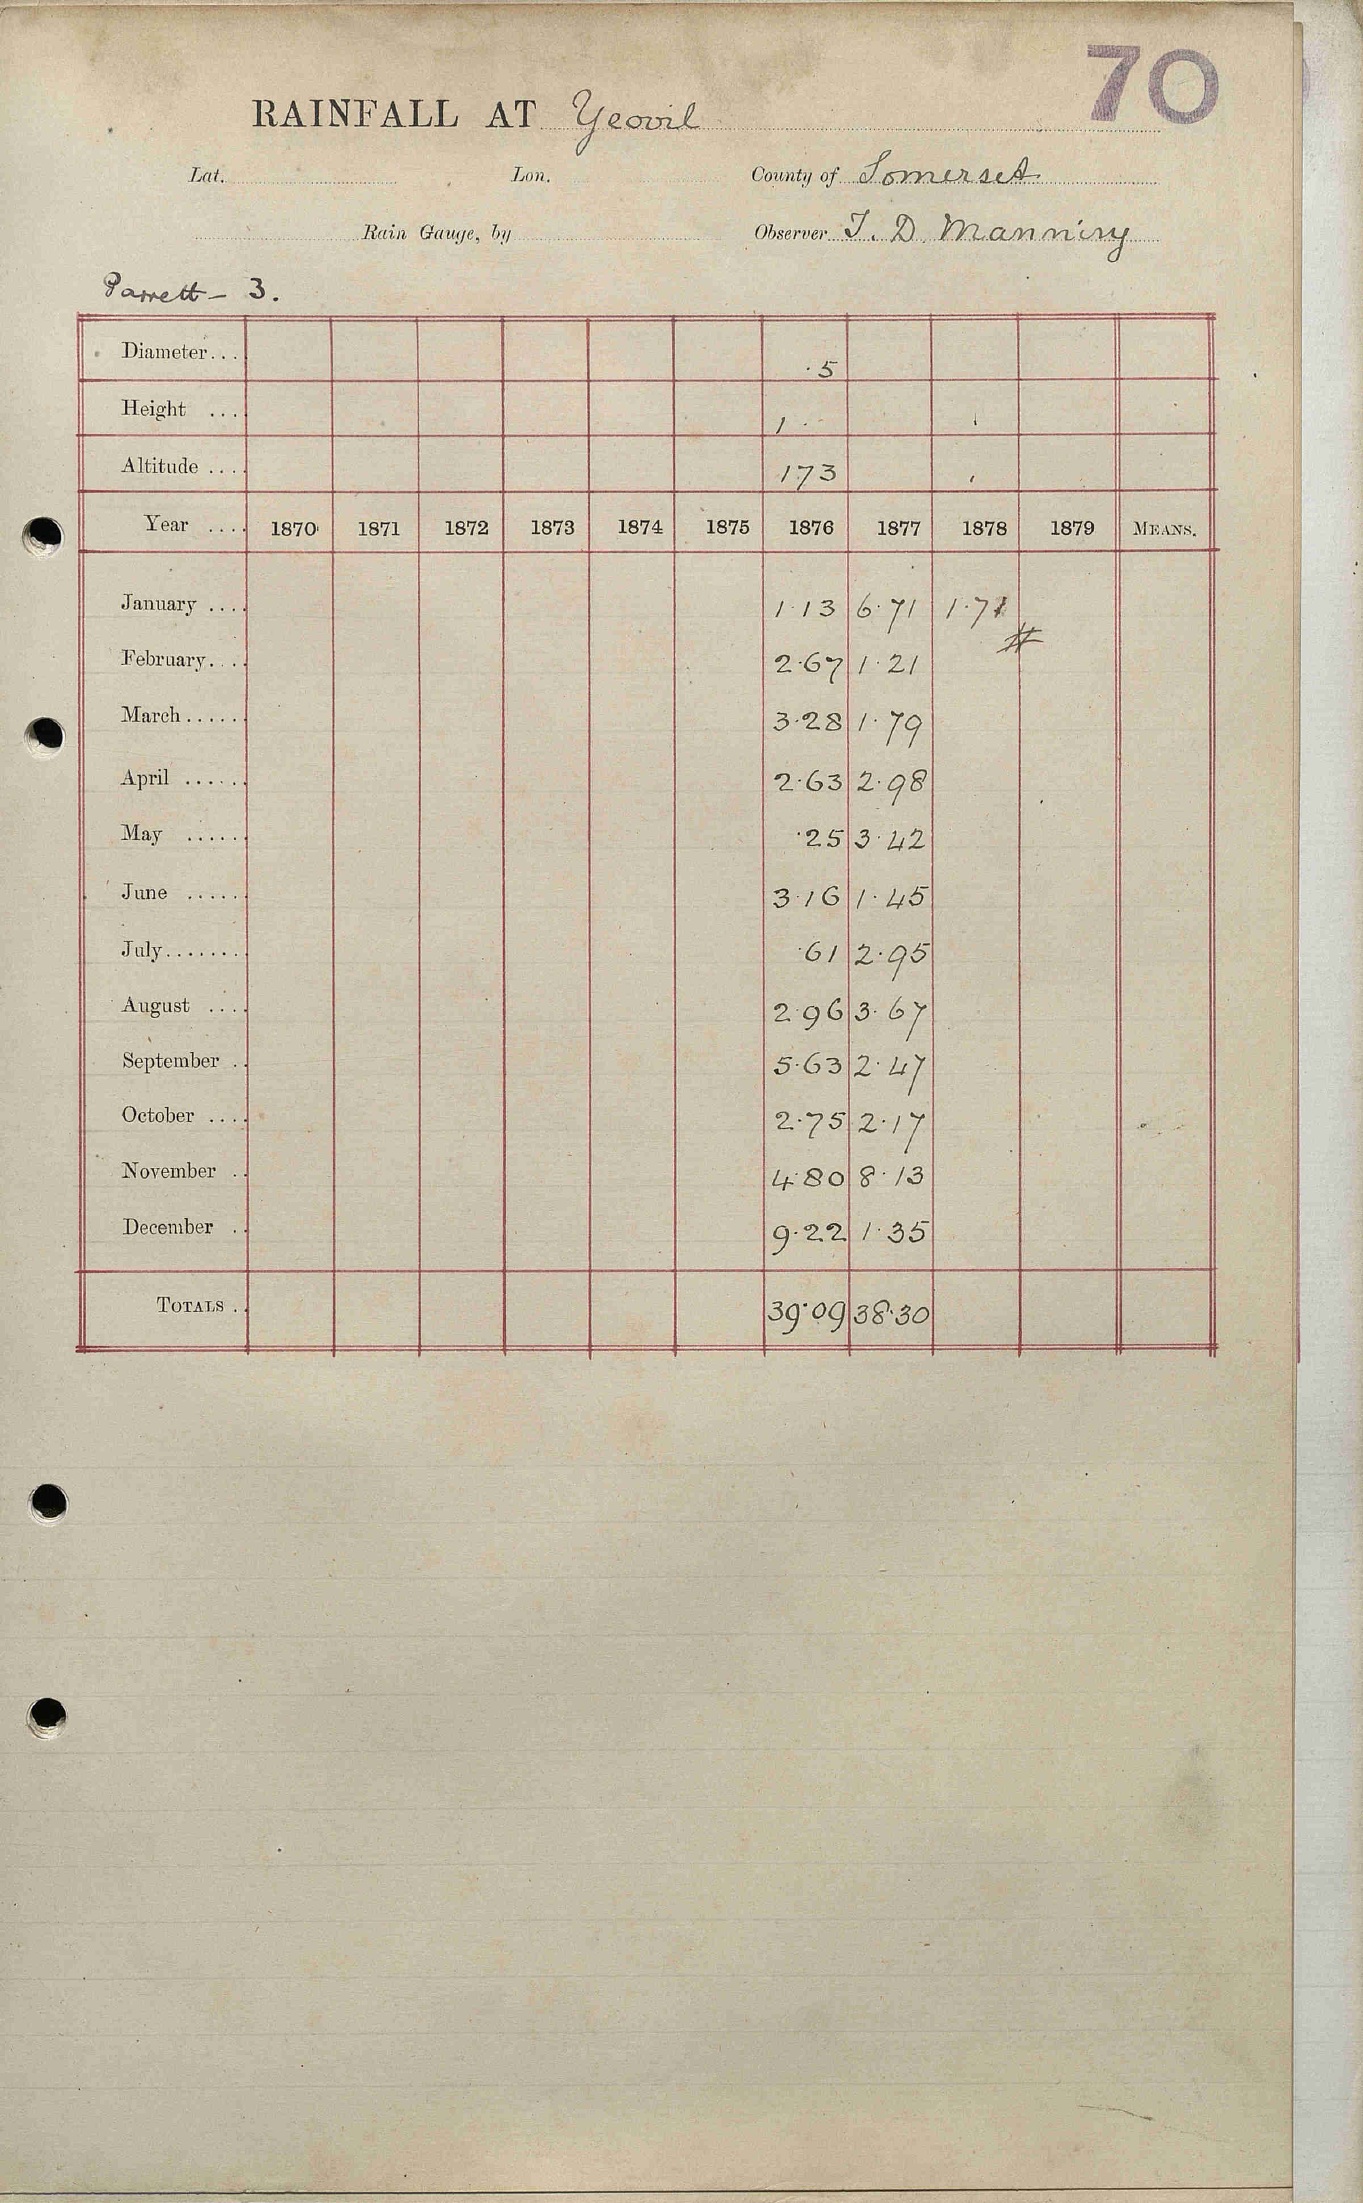 70
RAINFALL AT Yeovil
Lat. Lon. County of Somerset
Rain Gauge, by Observer T. D. Manning
Parrett - 3.
Diameter... ·5
Height .... 1
Altitude .... 173
Year .... 1870 1871 1872 1873 1874 1875 1876 1877 1878 1879 MEANS.
January .... 1·13 6·71 1·71
#
February.... 2·67 1·21
March...... 3·28 1·79
April ...... 2·63 2·98
May ...... ·25 3·42
June ...... 3·16 1·45
July....... ·61 2·95
August .... 2·96 3·67
September .. 5·63 2·47
October .... 2·75 2·17
November .. 4·80 8·13
December .. 9·22 1·35
TOTALS .. 39·09 38·30